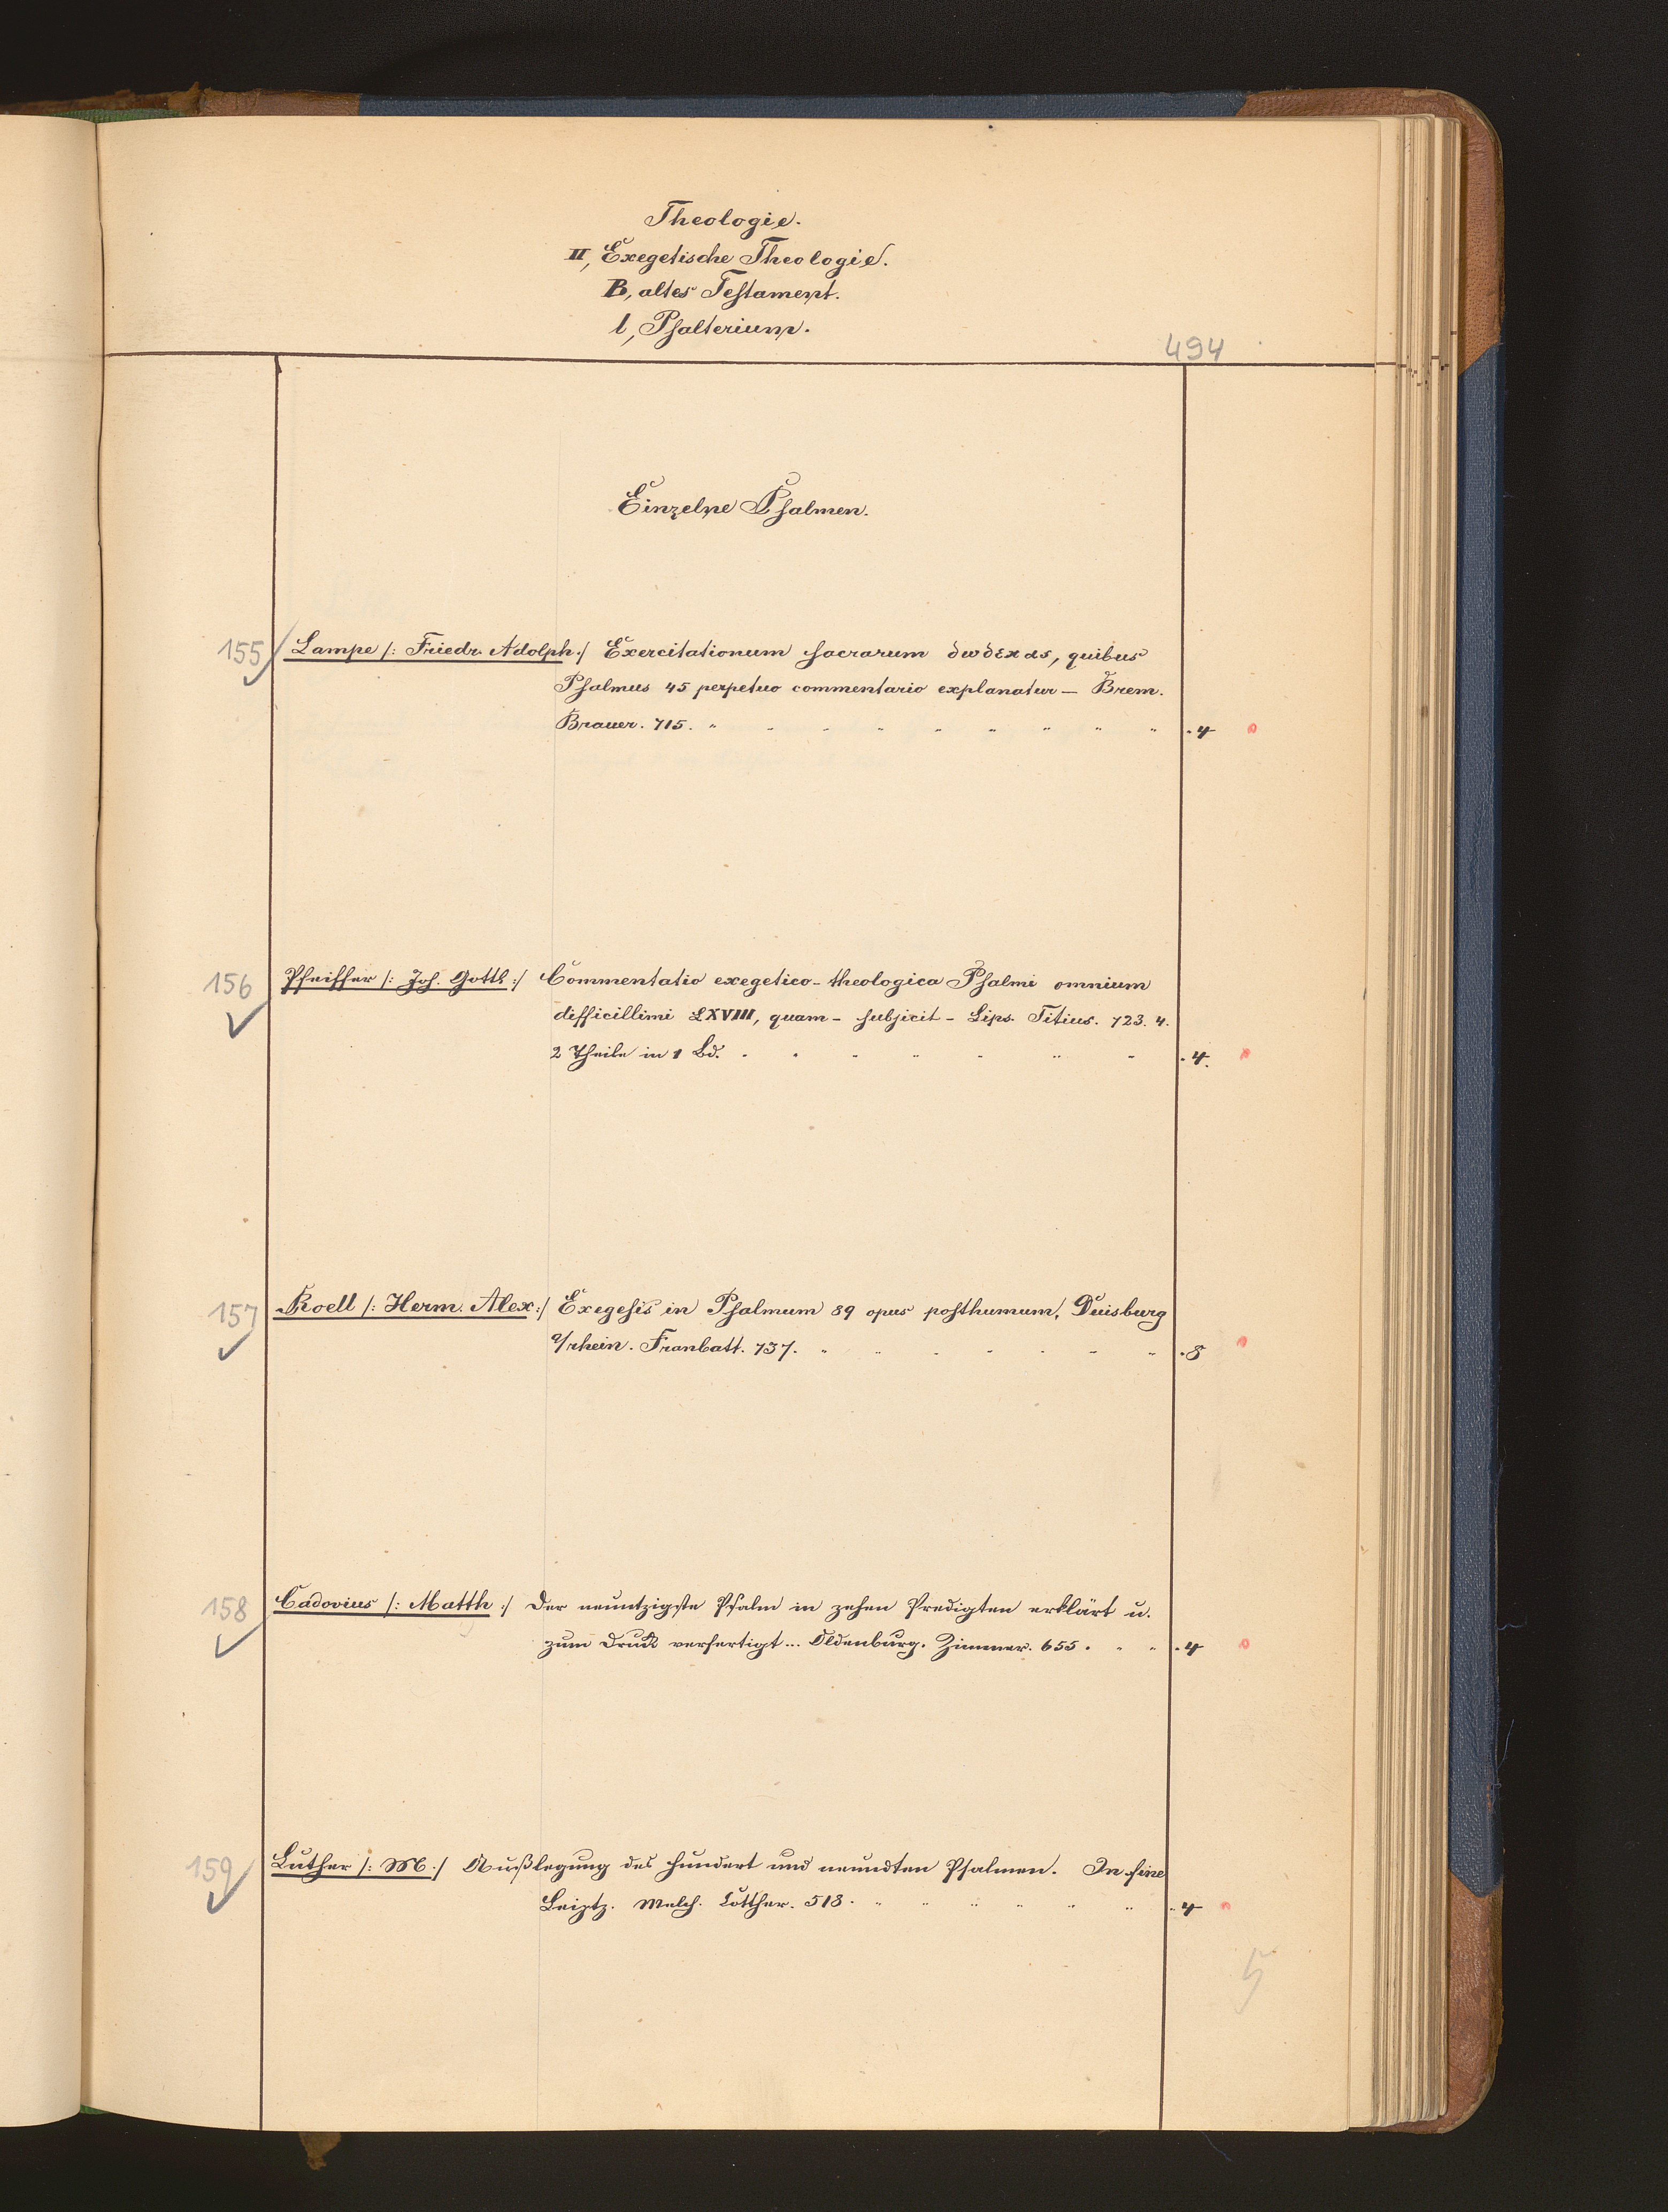 Theologie.
II, Exegetische Theologie.
B, altes Testament.
l, Psalterium.
494
Einzelne Psalmen.
155 Lampe /: Friedr. Adolph :/ Exercitationum sacrarum δωδεκας, quibus
Psalmus 45 perpetuo commentario explanatur – Brem.
Brauer. 715. " " " " " " " " " . 4
156 Pfeiffer /: Joh. Gottl :/ Commentatio exegetico-theologica Psalmi omnium
difficillimi LXVIII, quam – subjicit – Lips. Titius. 723. 4.
2 Theile in 1 Bd. " " " " " " " . 4.
157 Roell /: Herm. Alex :/ Exegesis in Psalmum 89 opus posthumum, Duisburg
a/rhein. Franbatt. 737. " " " " " " " . 8
158 Cadovius /: Matth :/ Der neuntzigste Psalm in zehen Predigten erklärt u.
zum Druck verfertigt ... Oldenburg. Zimmer. 655. " " . 4
159 Luther /: M :/ Außlegung des hundert und neundten Psalmen. In fine
Leiptz. Melch. Lotther. 518. " " " " " " . 4
5